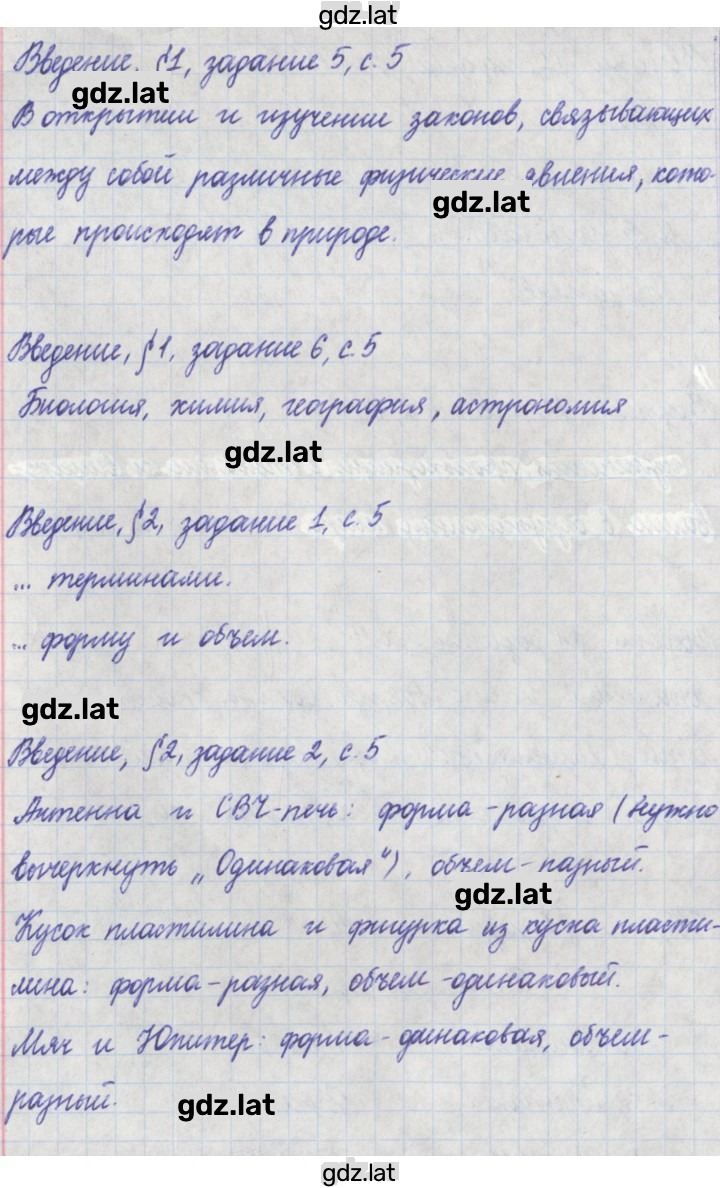 gdz.lat
Введение. §1, задание 5, с. 5
gdz.lat
В открытии и изучении законов, связывающих
между собой различные физические явления, кото-
gdz.lat
рые происходят в природе.
Введение, §1, задание 6, с. 5
Биология, химия, география, астрономия
gdz.lat
Введение, §2, задание 1, с. 5
... терминами.
... форму и объем.
gdz.lat
Введение, §2, задание 2, с. 5
Антенна и СВЧ-печь: форма - разная (нужно
вычеркнуть „Одинаковая“), объем - разный.
gdz.lat
Кусок пластилина и фигурка из куска пласти-
лина: форма - разная, объем - одинаковый.
Мяч и Юпитер: форма - одинаковая, объем -
разный.
gdz.lat
gdz.lat